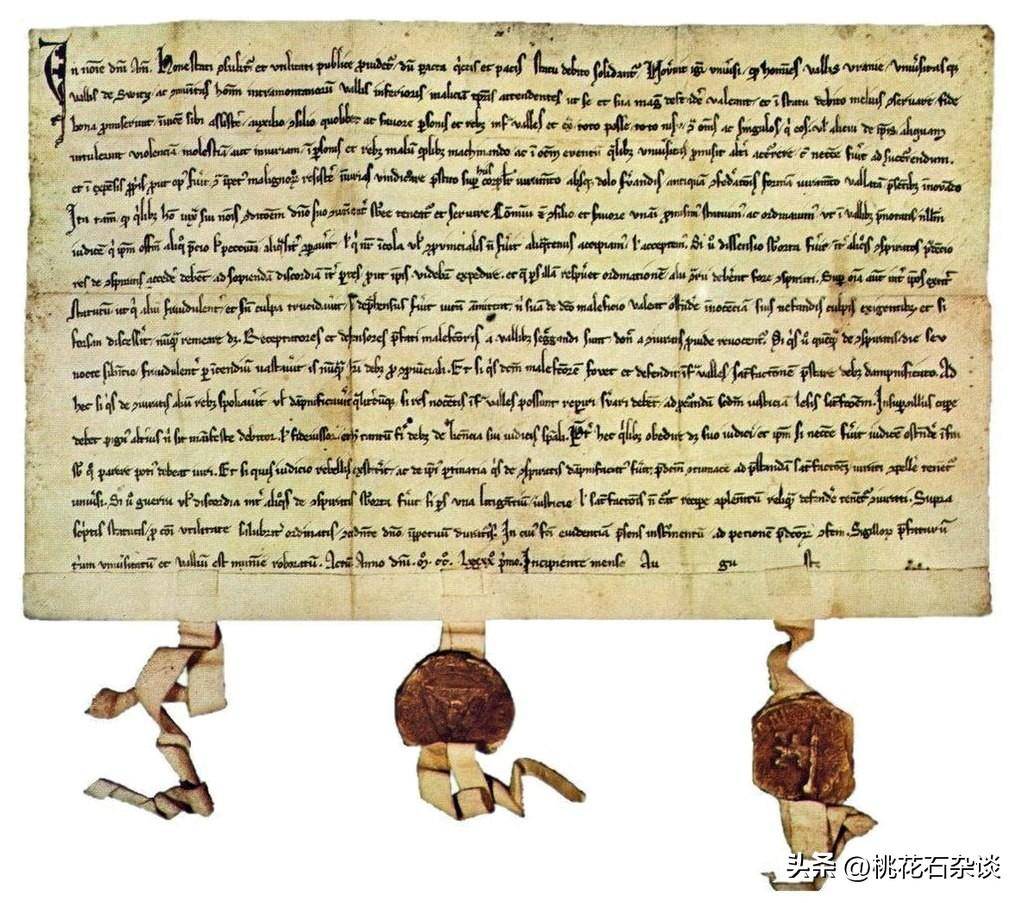 In noie dni Am. Honestati consulitur et utilitati publice providetur dum pacta quietis et pacis statu debito solidantur Noverint igr univsi qp homines vallis uranie univsitasque
vallis de Switz ac munitas hom intramontanorum vallis inferioris maliciam tpris attendentes ut se et sua mag defendere valeant et i statu debito melius conservare fide
bona promiserunt invicem sibi assistere auxilio consilio quolibet ac favore psonis et rebus infra valles et extra toto posse toto nisu contra omes ac singulos qui eis vl alicui de ipsis aliquam
intulerint violenciam molestiam aut iniuriam i psonis et rebus malum qdlibet machinando ac i oem eventum qlibet univsitas promisit alteri accurrere cum necesse fuit ad succurrendum
et i expensis propriis prout opus fuit contra impetus malignorum resistere iniurias vindicare prestito sup hiis corpalit iuramento absque dolo servandis antiquam confederationis formam iuramento vallatam presentibus innovando
Ita tamen qp qlibet homo iuxta sui nominis conditionem dno suo convenienter subesse teneatur et servire Comuni etiam consilio et favore unanimi promisimus statuimus ac ordinavimus ut i vallibus prenotatis nullum
iudicem qui ipsum officium aliquo precio vel peccunia aliqualiter comparaverit vel qui noster icola vl provincialis non fuit aliquatenus accipiamus vel acceptemus Si vero dissensio suborta fuit inter aliquos conspiratos prudencio
res de conspiratis accedere debent ad sopiendam discordiam inter partes prout ipsis videbitur expedire et que pars illam respueret ordinationem alii contrarii deberent fore conspirati Sup omia autem inter ipsos extitit
statutum ut qui alium fraudulenter et sine culpa trucidaverit si deprehensus fuit vitam amittat nisi suam de dicto maleficio valeat ostendere innocenciam suis nefandis culpis exigentibus et si
forsan discesserit nunquam remeare debet Receptatores et defensores prefati malefactoris a vallibus segregandi sunt donec a coniuratis provide revocentur Si quis vero quemquam de conspiratis die seu
nocte silencio fraudulenter per incendium vastaverit is nunquam haberi debet pro conprovinciali Et si quis dictum malefactorem fovet et defendit infra valles satisfactionem prestare debet dampnificato Ad
hec si quis de coniuratis alium rebus spoliaverit vl dampnificaverit qualitercumque si res nocentis infra valles possunt reperiri servari debent ad procurandam secundum iusticiam lesis satisfactionem Insuper nullus capere
debet pignus alterius nisi sit manifeste debitor vel fideiussor et hoc tantum fieri debet de licencia sui iudicis speciali Preter hec quilibet obedire debet suo iudici et ipsum si necesse fuit iudicem ostendere infra
sub quo parere potius debeat iuri Et si quis iudicio rebellis exstiterit ac de ipsius pertinatia quis de conspiratis dampnificatus fuit predictum contumacem ad prestandam satisfactionem iurati compellere tenentur
universi Si vero guerra vl discordia inter aliquos de conspiratis suborta fuit si pars una litigantium iusticie vel satisfactionis non curat recipere complementum reliquam defendere tenentur coniurati Supra
scriptis statutis pro communi utilitate salubriter ordinatis concedente domino inperpetuum duraturis In cuius facti evidentiam presens instrumentum ad peticionem predictorum confectum Sigillorum prefatarum
trium universitatum et vallium est munimine roboratum Actum Anno dni M CC LXXXX primo Incipiente mense Au gu sto
头条 @桃花石杂谈